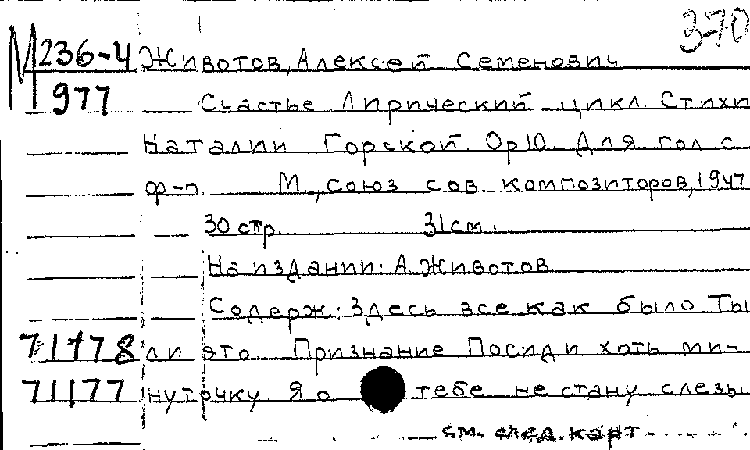 370
М236-4 Животов, Алексей Семенович
977 Счастье Лирический цикл. Стихи
Наталии Горской. Ор10. Для гол с
ф-п. М., Союз сов. композиторов, 1947
30 стр. 31 см.
На издании: А. Животов
Содерж: Здесь все как было Ты
71178 ли это. Признание Посиди хоть ми-
71177 нуточку Я о тебе не стану слезы
см. след. карт